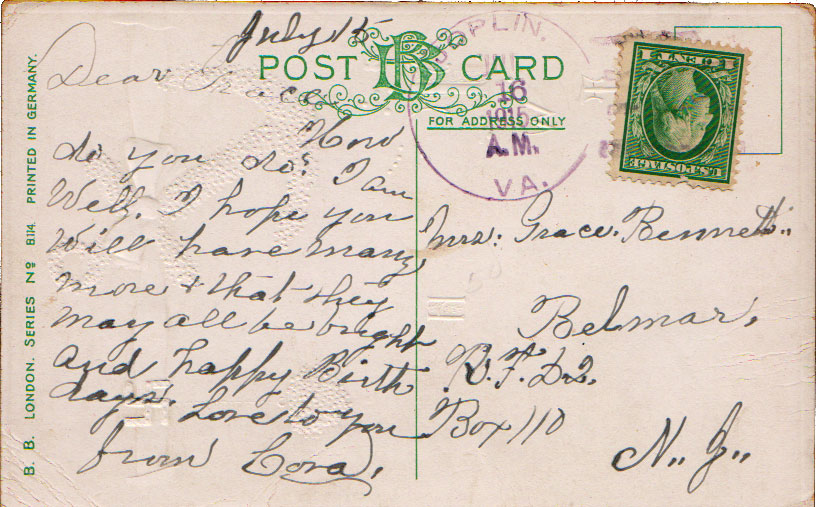 July 15
POST CARD
FOR ADDRESS ONLY
Dear Grace
How
do you do? I am
Well. I hope you
Will have many
more & that they
may all be bright
and happy Birth
days. Love to you
from Cora,
OPLIN.
16
1915
A.M.
VA.
U.S. POSTAGE
1 CENT 1
Mrs. Grace. Bennett.
Belmar,
R.F.D.2.
Box 110
N.. J..
B. B. LONDON. SERIES Nº B.114. PRINTED IN GERMANY.